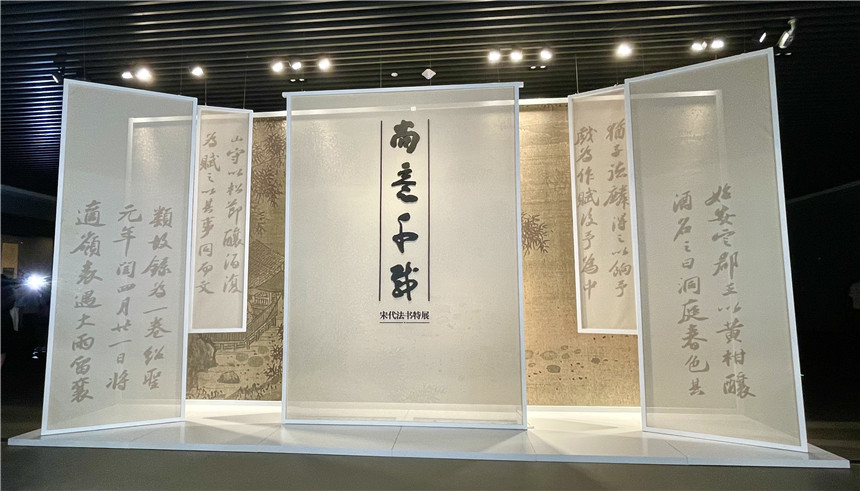 始安定郡王以黃柑釀
酒名之曰洞庭春色其
猶子德麟得之以餉予
戲為作賦後予為中
尚意千載
宋代法书特展
山守以松節釀酒復
為賦之以其事同而文
類故錄為一卷紹聖
元年閏四月廿一日將
適嶺表遇大雨留襄